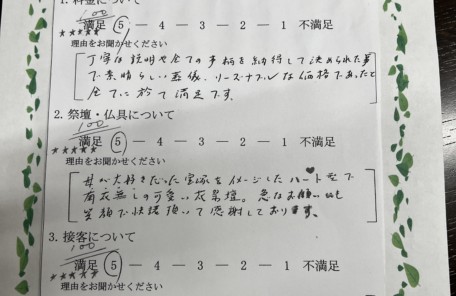 1. 料金について
100
満足 5 ― 4 ― 3 ― 2 ― 1 不満足
★★★★★
理由をお聞かせください
丁寧な説明や全ての事柄を納得して決められた事
で素晴らしい葬儀、リーズナブルな価格であったと
全てに於て満足です。
2. 祭壇・仏具について
100
満足 5 ― 4 ― 3 ― 2 ― 1 不満足
★★★★★
理由をお聞かせください
母が大好きだった宝塚をイメージしたハート型で
無しの可愛い花祭壇。急なお願いにも
笑顔で快諾頂いて感謝しております。
3. 接客について
100
満足 5 ― 4 ― 3 ― 2 ― 1 不満足
★★★★★
理由をお聞かせください